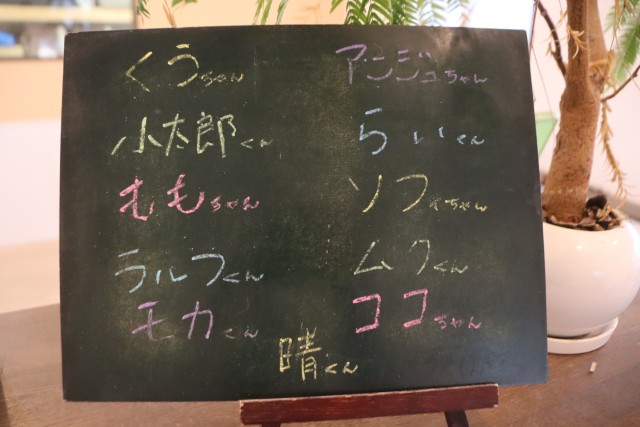 くうちゃん
アンジュちゃん
小太郎くん
らいくん
むむちゃん
ソフィちゃん
ラルフくん
ムクくん
モカくん
ココちゃん
晴くん